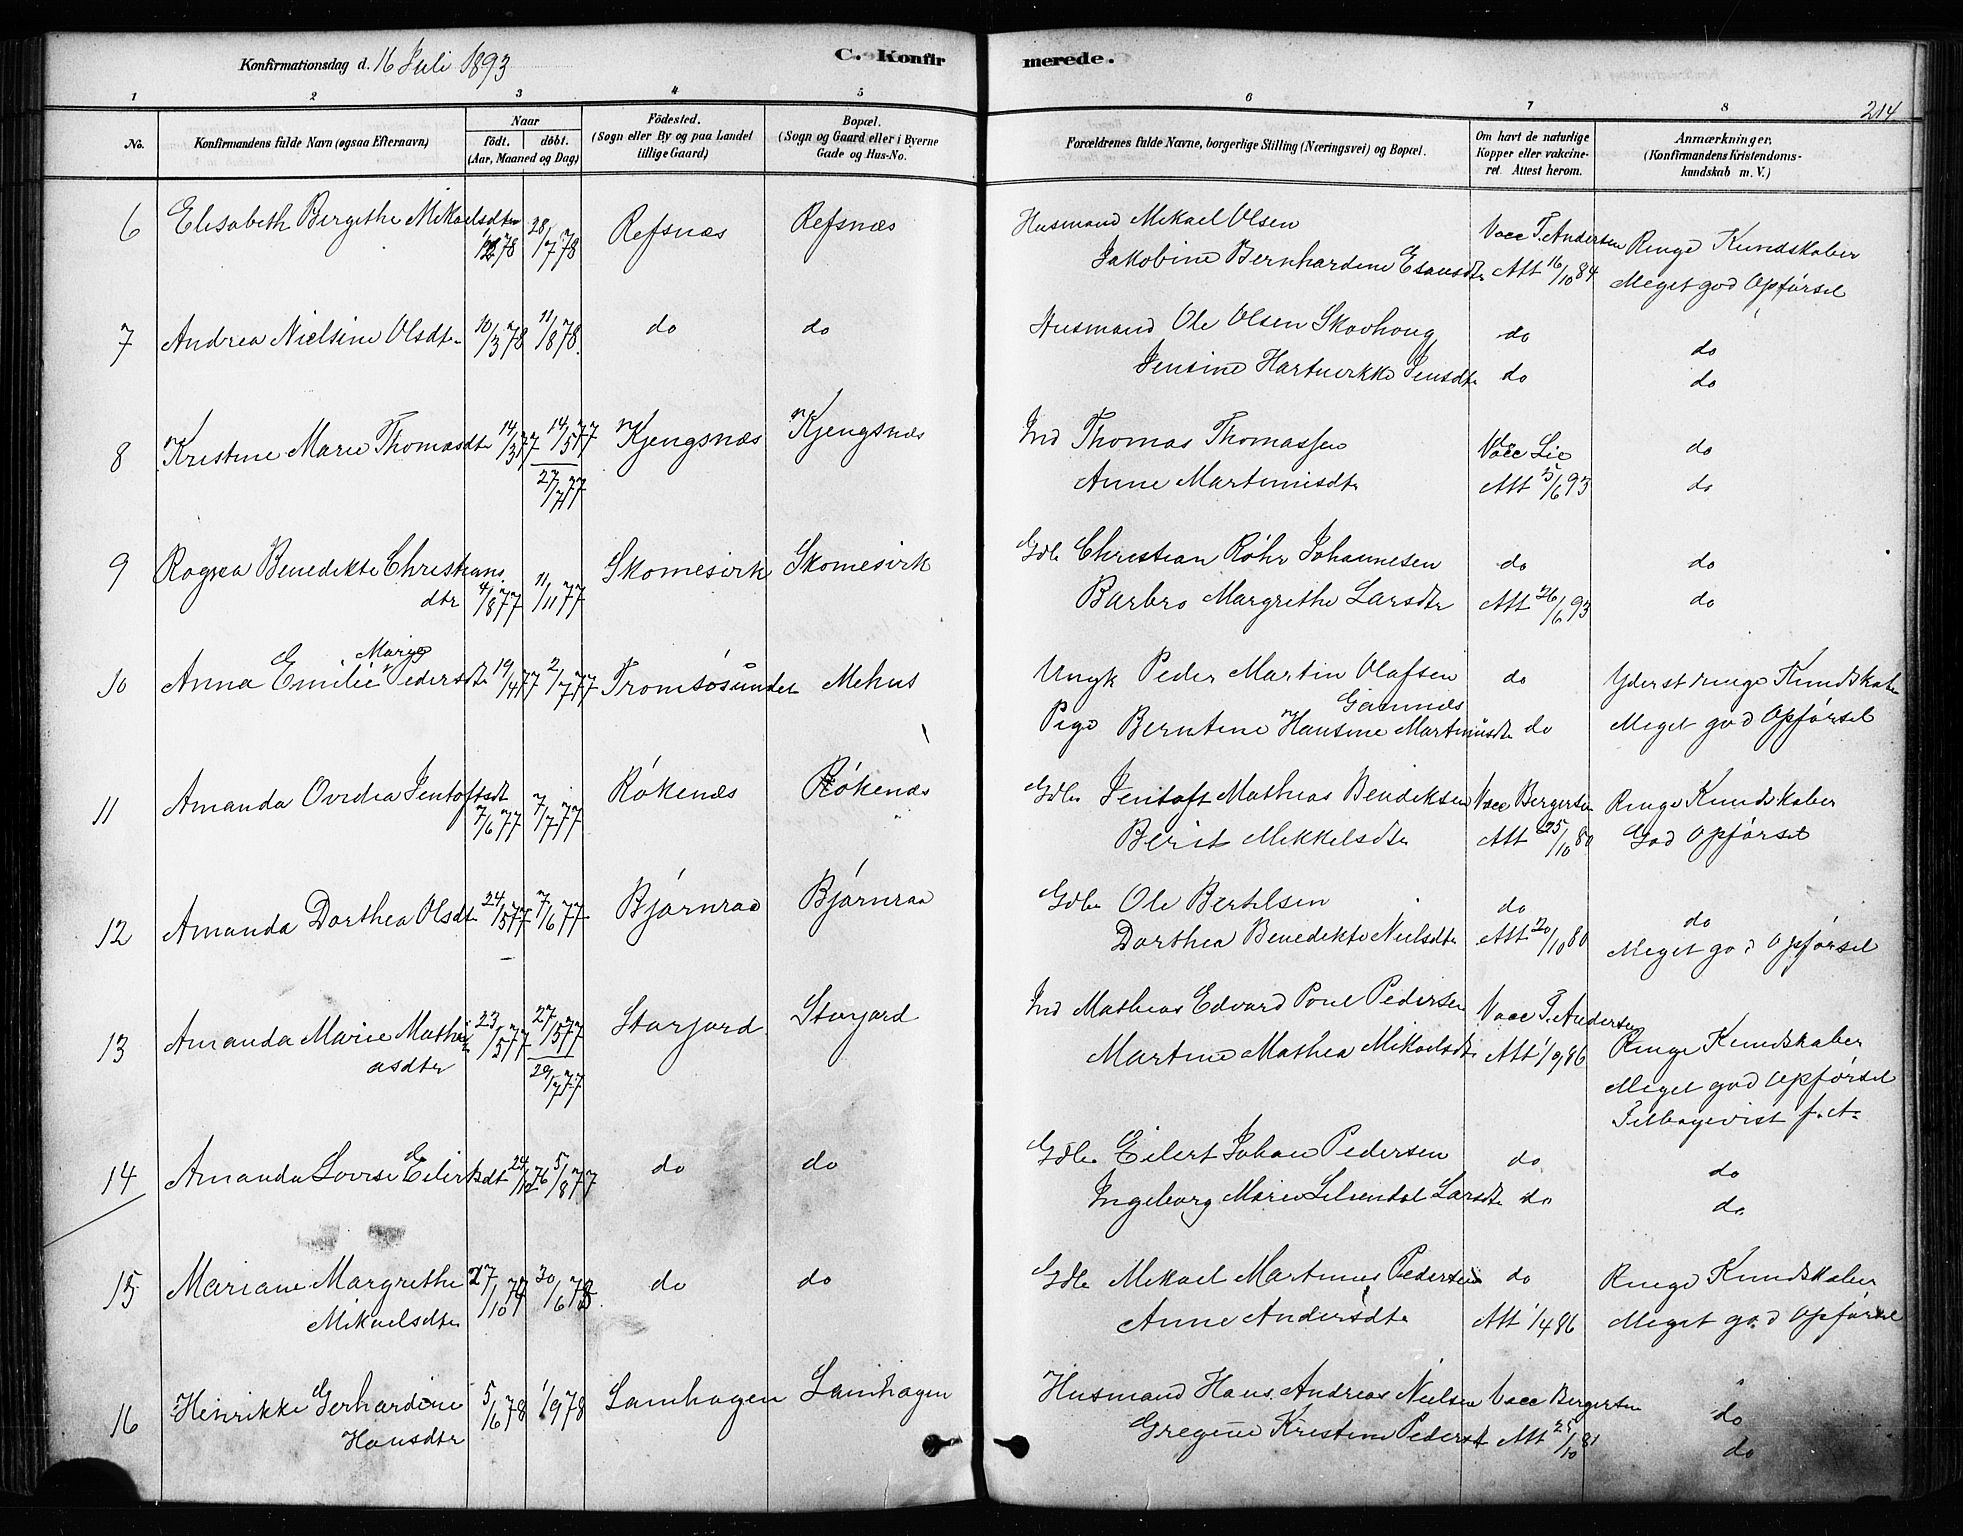 Konfirmationsdag d. 16 Juli 1893
C. Konfirmerede.
214
1 2 3 4 5 6 7 8
No.
Konfirmandens fulde Navn (ogsaa Efternavn)
Naar
födt. döbt.
(Aar, Maaned og Dag)
Födested.
(Sogn eller By og paa Landet
tillige Gaard)
Bopæl.
(Sogn og Gaard eller i Byerne
Gade og Hus-No.
Forældrenes fulde Navne, borgerlige Stilling (Næringsvei) og Bopæl.
Om havt de naturlige
Kopper eller vakcine-
ret. Attest herom.
Anmærkninger.
(Konfirmandens Kristendoms-
kundskab m. V.)
6 Elisabeth Bergithe Mikaelsdtr 28/7 78 Refsnæs Refsnæs Husmand Mikael Olsen Vacc T. Andersen Ringe Kundskaber
Jakobine Bernhardine Esausdtr Att 16/10 84 Meget god Opførsel
7 Andrea Nielsine Olsdtr 10/3 78 11/8 78. do do Husmand Ole Olsen Skovhoug do do
Jensine Hartverkke Jensdtr do do
8 Kristine Marie Thomasdtr 14/3 77 14/5 77 Kjengsnæs Kjengsnæs Ind Thomas Thomassen Vacc Lie do
27/7 77 Anne Martinusdtr Att 5/6 93 do
9 Ragna Benedikte Christians
dtr 4/8 77 11/11 77 Skomesvik Skomesvik Gdbr Christian Røhr Johannesen do do
Barbro Margrethe Larsdtr Att 26/6 93 do
10 Anna Emilie Marie Pedersdtr 19/4 77 2/7 77 Tromsøsundet Mehus Ungk Peder Martin Olafsen do Yderst ringe Kundskaber
Gamnæs
Pige Berntine Hansine Martinusdtr do Meget god Opførsel
11 Amanda Ovedia Jentoftsdt 7/6 77 7/7 77 Røkenæs Røkenæs Gdbr Jentoft Mathias Bendiksen Vacc Bergersen Ringe Kundskaber
Berit Mikkelsdtr Att 25/10 80 God Opførsel
12 Amanda Dorthea Olsdtr 24/5 77 7/6 77 Bjørnraa Bjørnraa Gdbr Ole Bertelsen do do
Dorthea Benedikte Nielsdtr Att 20/10 80 Meget god Opførsel
13 Amanda Marie Mathi
asdtr 23/5 77 27/5 77 Storjord Storjord Ind Mathias Edvard Poul Pedersen Vacc T. Andersen
29/7 77 Martine Mathea Mikaelsdtr Att 1/9 86 Ringe Kundskaber
Meget god Opførsel
Tilbagevist f. A.
14 Amanda Lovise Eilertsdt 24/12 76 5/8 77 do do Gdbr Eilert Johan Pedersen do do
Ingeborg Marie Liliendal Larsdtr do do
15 Mariane Margrethe
Mikaelsdtr 27/10 77 30/6 78 do do Gdbr Mikael Martinus Pedersen do Ringe Kundskaber
Anne Andersdtr Att 1/4 86 Meget god Opførsel
16 Henrikke Gerhardine
Hansdtr 5/6 78 1/9 78 Lamhagen Lamhagen Husmand Hans Andreas Nielsen Vacc Bergersen do
Gregine Kristine Pedersdt Att 25/10 81 do